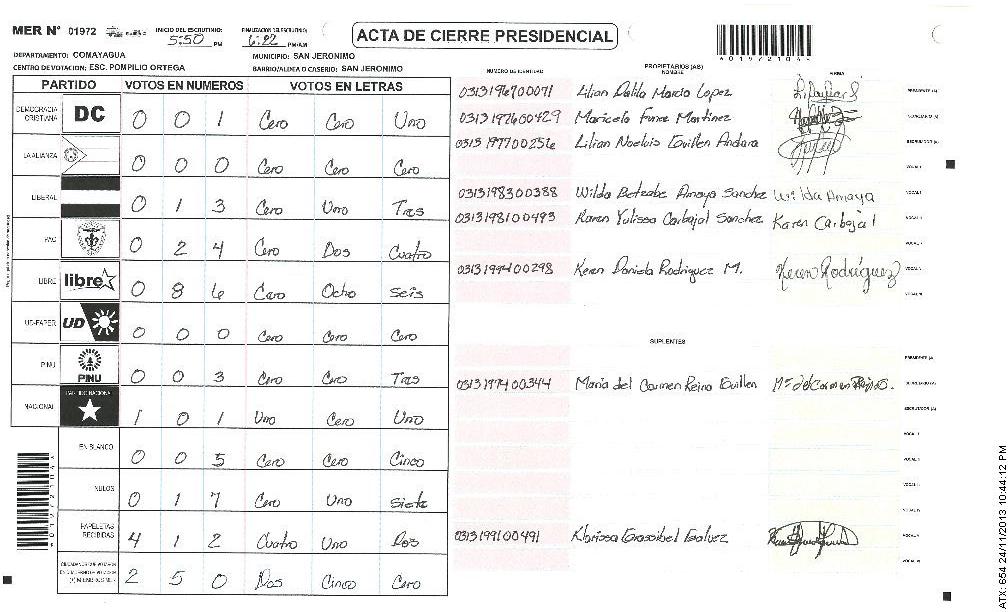 MER Nº 01972 INICIO DEL ESCRUTINIO: 5:50 PM FINALIZACION DEL ESCRUTINIO: 6:22 PM/AM
ACTA DE CIERRE PRESIDENCIAL
DEPARTAMENTO: COMAYAGUA MUNICIPIO: SAN JERONIMO
CENTRO DE VOTACION: ESC. POMPILIO ORTEGA BARRIO/ALDEA O CASERIO: SAN JERONIMO
PARTIDO VOTOS EN NUMEROS VOTOS EN LETRAS
DEMOCRACIA CRISTIANA DC 0 0 1 Cero Cero Uno
LA ALIANZA 0 0 0 Cero Cero Cero
LIBERAL 0 1 3 Cero Uno Tres
PAC 0 2 4 Cero Dos Cuatro
LIBRE libre 0 8 6 Cero Ocho Seis
UD-FAPER UD 0 0 0 Cero Cero Cero
PINU PINU 0 0 3 Cero Cero Tres
NACIONAL PARTIDO NACIONAL 1 0 1 Uno Cero Uno
EN BLANCO 0 0 5 Cero Cero Cinco
NULOS 0 1 7 Cero Uno Siete
PAPELETAS RECIBIDAS 4 1 2 Cuatro Uno Dos
2 5 0 Dos Cinco Cero
PROPIETARIOS (AS)
NUMERO DE IDENTIDAD NOMBRE FIRMA
Lilian Dalila Marcia Lopez PRESIDENTE (A)
0313197600429 Maricela Funez Martinez SECRETARIO (A)
Lilian Noelvis Guillen Andara ESCRUTADOR (A)
VOCAL I
0313198300388 Wilda Betzabe Amaya Sanchez Wilda Amaya
0313198100493 Karen Yulissa Carbajal Sanchez Karen Carbajal
0313199400298 Keren Daniela Rodriguez M. Keren Rodríguez
SUPLENTES
PRESIDENTE (A)
0313197400344 Maria del Carmen Reina Guillen SECRETARIO (A)
ESCRUTADOR (A)
VOCAL I
0313199100491 Klarissa Grassibel Galvez
ATX: 654 24/11/2013 10:44:12 PM